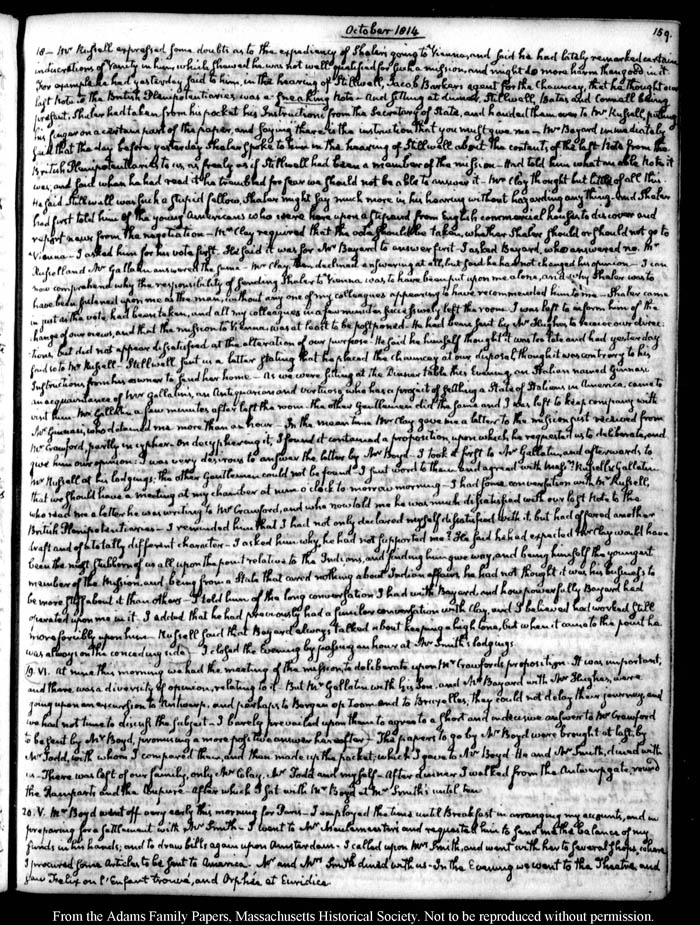 October 1814
159.
18 — Mr Russell expressed some doubts as to the expediency of Shaler's going to Vienna, and said he had lately remarked certain
indications of Vanity in him, which shewed he was not well qualified for such a mission, and might do more harm than good in it
For example he had yesterday said to him, in the hearing of Stillwell, Jacob Barker's agent for the Chauncey, that he thought our
last Note to the British Plenipotentiaries was a sneaking Note — And sitting at dinner, Stillwell, Bates and Connell being
present, Shaler had taken from his pocket his Instructions from the Secretary of State, and handed them over to Mr Russell, putting
his finger on a certain part of the paper, and saying there is the instruction that you must give me — Mr Bayard immediately
said that the day before yesterday Shaler spoke to him in the hearing of Stillwell about the contents of the last Note from the
British Plenipotentiaries to us, as freely as if Stillwell had been a member of the mission — And told him what an able Note it
was, and said when he had read it he trembled for fear we should not be able to answer it — Mr Clay thought but little of all this.
He said Stillwell was such a stupid fellow, Shaler might say much more in his hearing without hazarding any thing. And Shaler
had first told him of the young Americans who were here upon a stipend from English commercial houses to discover and
report news from the negotiation — Mr Clay required that the vote should be taken, whether Shaler should or should not go to
Vienna — I asked him for his vote first. He said it was for Mr Bayard to answer first. I asked Bayard, who answered no. Mr
Russell and Mr Gallatin answered the same — Mr Clay then declined answering at all, but said he had not changed his opinion — I can
now comprehend why the responsibility of sending Shaler to Vienna was to have been put upon me alone, and why Shaler was to
have been fastened upon me as the man, without any one of my colleagues appearing to have recommended him to me — Shaler came
in just as the vote had been taken, and all my colleagues in a few minutes successively left the room. I was left to inform him of the
change of our views, and that the mission to Vienna was at least to be postponed. He had been sent by Mr Hughes to receive our direc-
tions, but did not appear dissatisfied at the alteration of our purpose. He said he himself thought it was too late and had yesterday
said so to Mr Russell — Stillwell sent in a letter stating that he placed the Chauncey at our disposal though it was contrary to his
Instructions from his owner to send her home — As we were sitting at the Dinner table this Evening, an Italian named
an acquaintance of Mr Gallatin's, an Antiquarian and virtuoso who has a project of selling a State of Italians in America, came to
visit him. Mr Gallatin a few minutes after left the room — the other Gentlemen did the same and I was left to keep company with
Mr who detained me more than an hour — In the mean time Mr Clay gave me a letter to the mission just received from
Mr Crawford, partly in cypher. On decyphering it, I found it contained a proposition upon which he requested us to deliberate, and
give him our opinion: I was very desirous to answer the letter by Mr Boyd — I took it first to Mr Gallatin, and afterwards to
Mr Russell at his lodgings. The other Gentlemen could not be found — I sent word to them and agreed with Messrs Russell & Gallatin
that we should have a meeting at my chamber at nine o'clock to-morrow morning — I had some conversation with Mr Russell,
who read me a letter he was writing to Mr Crawford, and who now told me he was much dissatisfied with our last Note to the
British Plenipotentiaries — I reminded him that I had not only declared myself dissatisfied with it, but had offered another
draft and of a totally different character — I asked him why he had not supported me? He said he had expected Mr Clay would have
been the most stubborn of us all upon the point relative to the Indians, and finding him give way, and being himself the youngest
member of the Mission, and being from a State that cared nothing about Indian affairs he had not thought it was his business to
be more stiff about it than others — I told him of the long conversation I had with Bayard, and how powerfully Bayard had
operated upon me in it. I added that he had previously had a similar conversation with Clay, and I believed had worked still
more forcibly upon him — Russell said that Bayard always talked about keeping a high tone, but when it came to the point he
was always on the conceding side — I closed the Evening by passing an hour at Mr Smith's lodgings
19. VI. At nine this morning we had the meeting of the mission to deliberate upon Mr Crawford's proposition. It was important,
and there was a diversity of opinion, relating to it. But Mr Gallatin with his Son, and Mr Bayard with Mr Hughes, were
going upon an excursion to Antwerp, and perhaps to Bergen op Zoom and to Bruxelles, they could not delay their journey, and
we had not time to discuss the subject — I barely prevailed upon them to agree to a short and indecisive answer to Mr Crawford
to be sent by Mr Boyd, promising a more positive answer hereafter — The papers to go by Mr Boyd were brought at last, by
Mr Todd, with whom I compared them, and then made up the packet, which I gave to Mr Boyd. He and Mr Smith, dined with
us — There was left of our family, only Mr Clay, Mr Todd and myself — After dinner I walked from the Antwerp gate, round
the Ramparts and the Coupure — After which I sat with Mr Boyd at Mr Smith's until ten
20. V. Mr Boyd went off very early this morning for Paris — I employed the time until Breakfast in arranging my accounts, and in
preparing for a settlement with Mr Smith — I went to Mr Meulemeester and requested him to send me the balance of my
funds in his hands; and to draw bills again upon Amsterdam — I called upon Mrs Smith, and went with her to several shops, where
I procured some Articles to be sent to America — Mr and Mrs Smith dined with us — In the Evening we went to the Theatre, and
saw Felix ou l'Enfant trouvé, and Orphée et Euridice
From the Adams Family Papers, Massachusetts Historical Society. Not to be reproduced without permission.